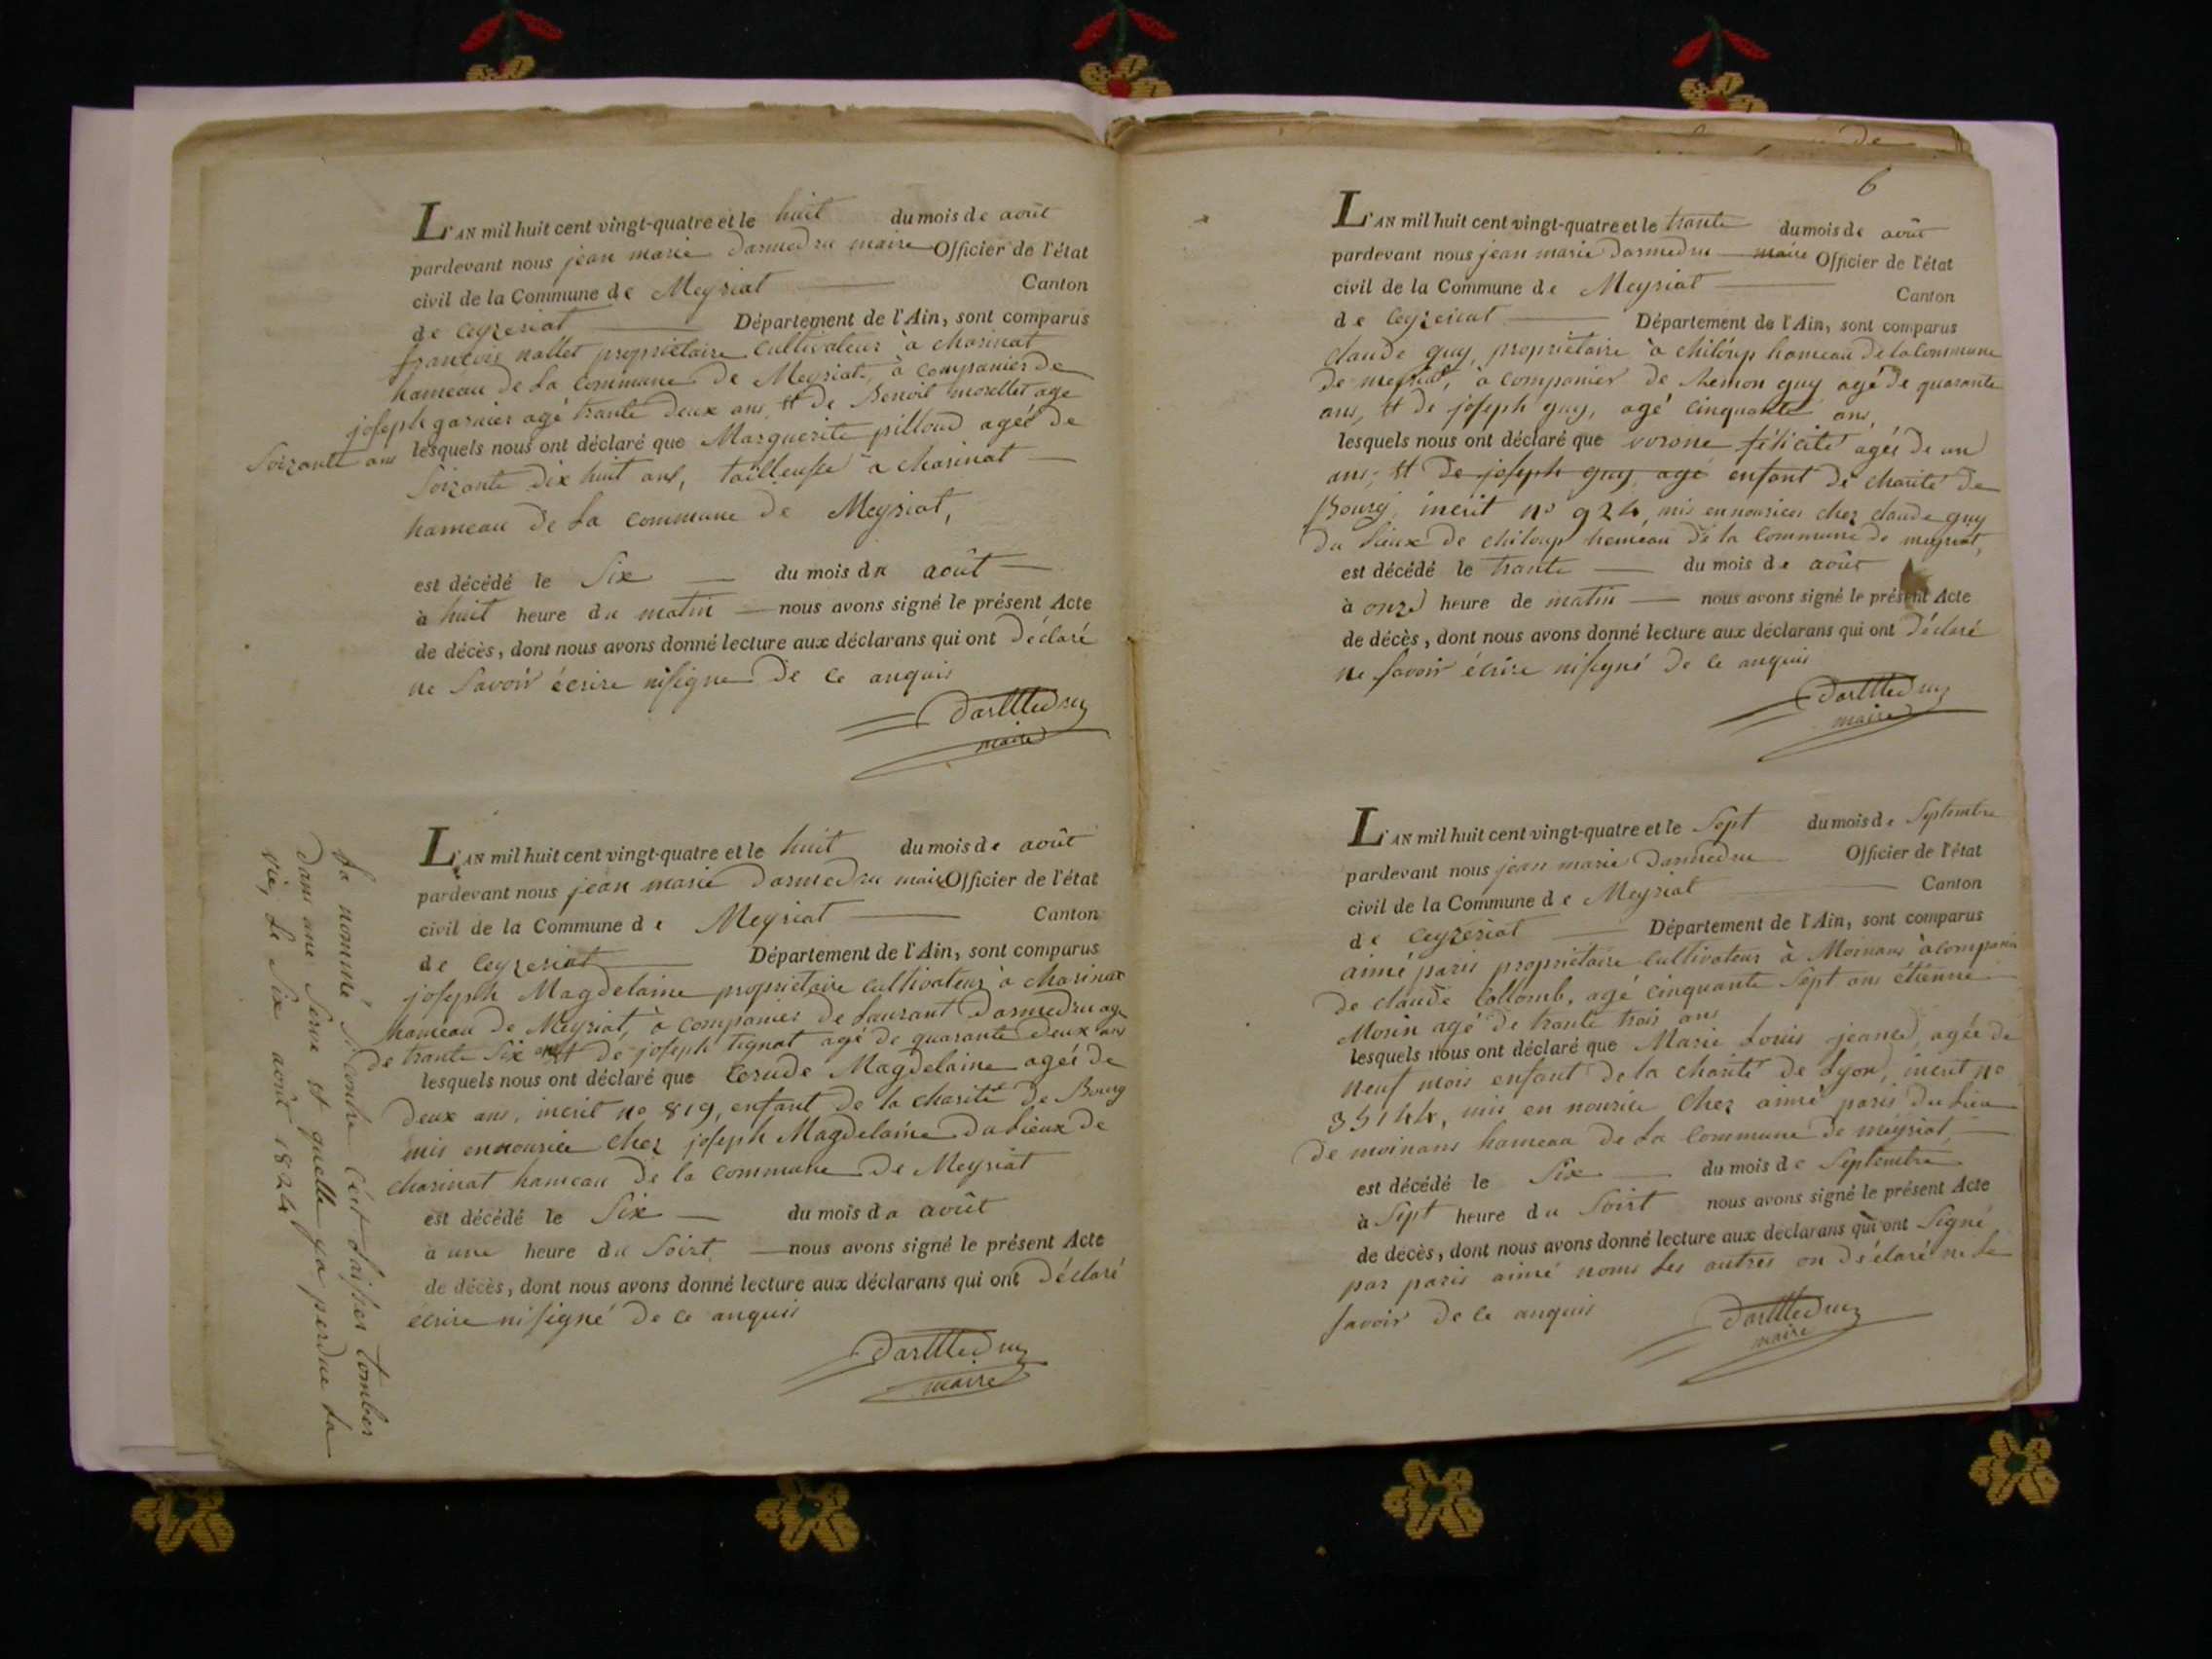 L'AN mil huit cent vingt-quatre et le huit du mois de août
pardevant nous jean marie darmedru maire Officier de l'état
civil de la Commune de Meyriat Canton
de Ceyzeriat Département de l'Ain, sont comparus
françois nallet propriétaire Cultivateur à charinat
hameau de La Commune De Meyriat, à Companier De
joseph garnier agé trante deux ans, et de Benoit morellet age
Soizante ans lesquels nous ont déclaré que Marguerite pilloud agée de
Soizante Dix huit ans, tailleusse à charinat
hameau De La Commune De Meyriat,
est décédé le Six du mois de août
à huit heure du matin nous avons signé le présent Acte
de décès, dont nous avons donné lecture aux déclarans qui ont Déclaré
ne Savoir écrire nisigne De Ce anquis
DarMedru
maire
L'AN mil huit cent vingt-quatre et le huit du mois de août
pardevant nous jean marie darmedru maire Officier de l'état
civil de la Commune de Meyriat Canton
de Ceyzeriat Département de l'Ain, sont comparus
joseph Magdelaine propriétaire cultivateur à charinat
hameau De Meyriat, à Companier de Laurant Darmedru age
De trante Six et de joseph tignat agé de quarante Deux ans
lesquels nous ont déclaré que Magdelaine agée de
Deux ans, incrit no 819, enfant de la charité de Bourg
mis ennourice Chez joseph Magdelaine Du Lieux De
charinat hameau De la Commune De Meyriat
est décédé le Six du mois de août
à une heure du Soirt nous avons signé le présent Acte
de décès, dont nous avons donné lecture aux déclarans qui ont Déclaré
écrire nisigné De Ce anquis
DarMedru
maire
La nommé Cét Laisser tomber
Dans une Serve et quelle ya perdue La
vie, Le Six août 1824
6
L'AN mil huit cent vingt-quatre et le trante du mois de août
pardevant nous jean marie Darmedru maire Officier de l'état
civil de la Commune de Meyriat Canton
de Ceyzeriat Département de l'Ain, sont comparus
claude guy, propriétaire à chiloup hameau De la Commune
De meyriat, à companier de guy agé De quarante
ans, et de joseph guy, agé cinquante ans,
lesquels nous ont déclaré que vorone félicité agée de un
ans, et De joseph guy, agé enfant De charité De
Bourg, incrit no 924, mis ennourices chez claude guy
Du Lieux De chiloup hameau De la Commune de meyriat,
est décédé le trante du mois de août
à onze heure de matin nous avons signé le présent Acte
de décès, dont nous avons donné lecture aux déclarans qui ont Déclaré
ne savoir écrire nisigné De Ce anquis
DarMedru
maire
L'AN mil huit cent vingt-quatre et le Sept du mois de Septembre
pardevant nous jean marie Darmedru Officier de l'état
civil de la Commune de Meyriat Canton
de Ceyzeriat Département de l'Ain, sont comparus
aimé paris propriétaire Cultivateur à Moinans àcompanier
De claude Collomb, agé cinquante Sept ans étienne
Morin agé De trante trois ans
lesquels nous ont déclaré que Marie Louis jeane, agée De
neuf mois enfant De la charité De Lyon, incrit no
35144, mis en nourice Chez aimé paris Du Lieu
De moinans hameau De La Commune De meyriat,
est décédé le Six du mois de Septembre
à Sept heure du Soirt nous avons signé le présent Acte
de décès, dont nous avons donné lecture aux déclarans qui ont Signé
par paris aimé noms Les autres on Déclaré ne Le
savoir De Ce anquis
DarMedru
maire